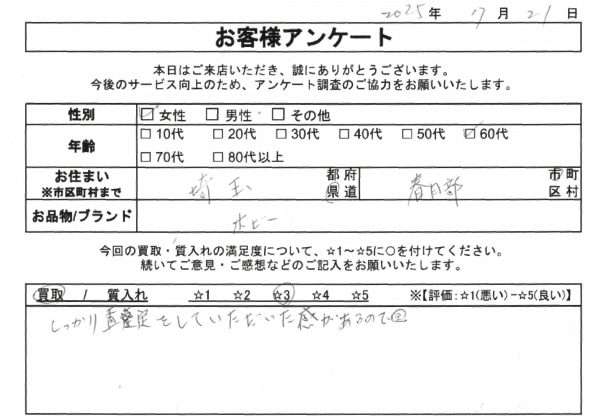 2025年 7月 21日
お客様アンケート
本日はご来店いただき、誠にありがとうございます。
今後のサービス向上のため、アンケート調査のご協力をお願いいたします。
性別 ☑女性 □男性 □その他
年齢 □10代 □20代 □30代 □40代 □50代 ☑60代
□70代 □80代以上
お住まい
※市区町村まで 埼玉 都府県道 春日部 市町区村
お品物/ブランド ホビー
今回の買取・質入れの満足度について、☆1~☆5に○を付けてください。
続いてご意見・ご感想などのご記入をお願いいたします。
買取 / 質入れ ☆1 ☆2 ☆3 ☆4 ☆5 ※【評価:☆1(悪い)-☆5(良い)】
しっかり査定をしていただいた感があるので